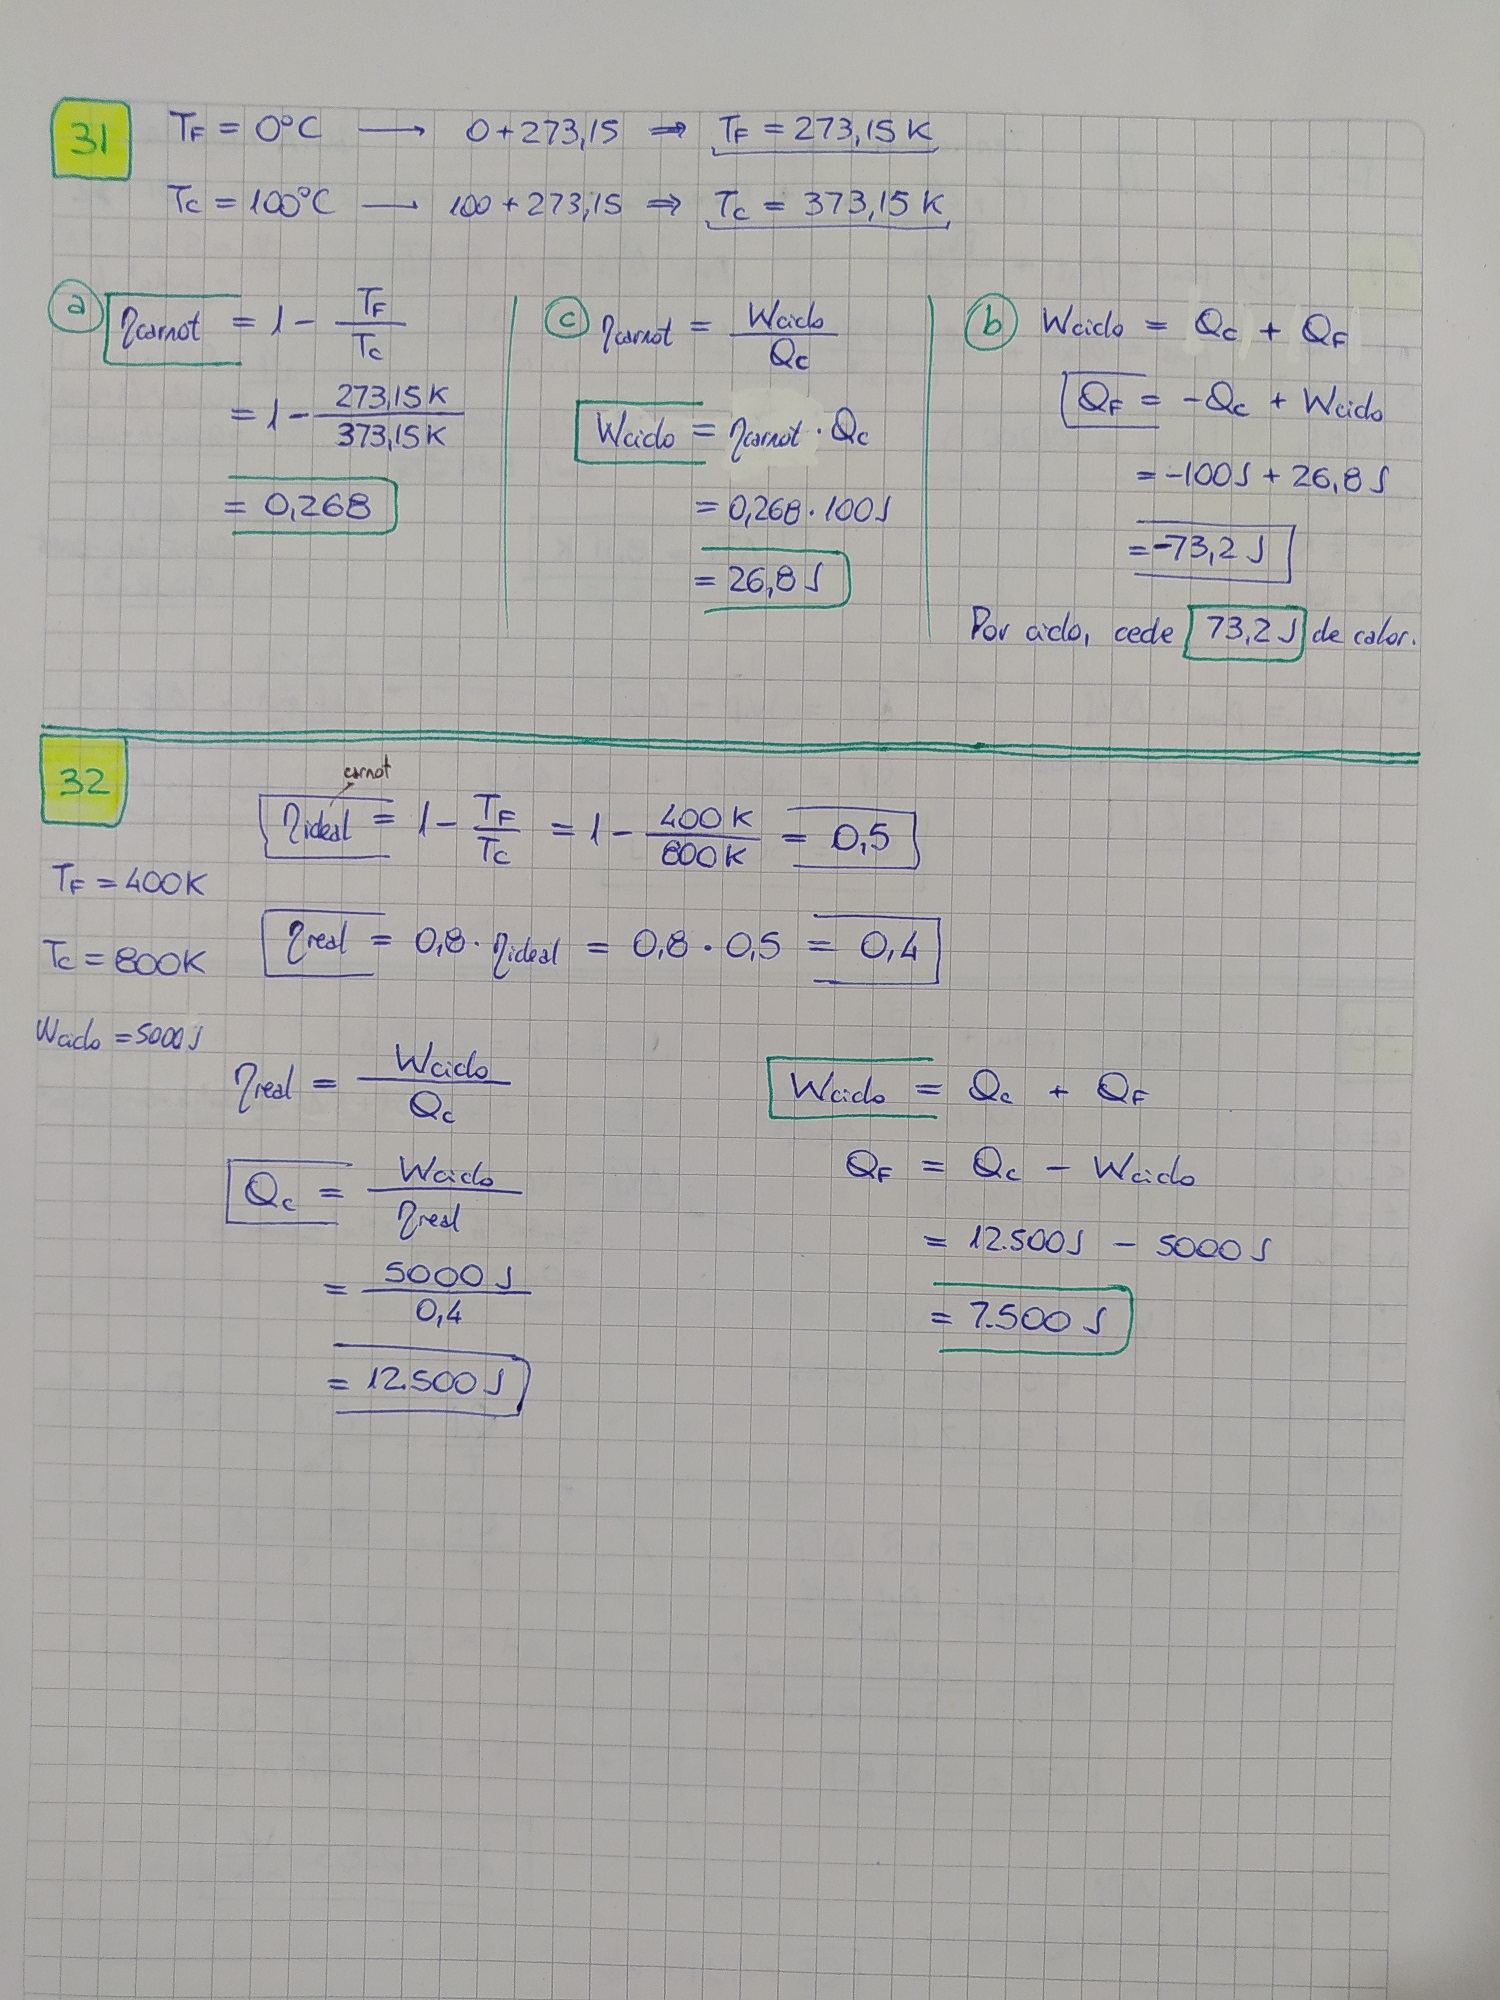 31
TF = 0°C → 0 + 273,15 ⇒ TF = 273,15 K
Tc = 100°C → 100 + 273,15 ⇒ Tc = 373,15 K
a) ηcarnot = 1 - TF/Tc
= 1 - 273,15K/373,15K
= 0,268
c) ηcarnot = Wciclo/Qc
Wciclo = ηcarnot · Qc
= 0,268 · 100J
= 26,8 J
b) Wciclo = Qc + QF
QF = -Qc + Wciclo
= -100J + 26,8 J
= -73,2 J
Por ciclo, cede 73,2 J de calor.
32
carnot
ηideal = 1 - TF/Tc = 1 - 400K/800K = 0,5
TF = 400K
ηreal = 0,8 · ηideal = 0,8 · 0,5 = 0,4
Tc = 800K
Wciclo = 5000J
ηreal = Wciclo/Qc
Qc = Wciclo/ηreal
= 5000 J/0,4
= 12.500 J
Wciclo = Qc + QF
QF = Qc - Wciclo
= 12.500J - 5000 J
= 7.500 J